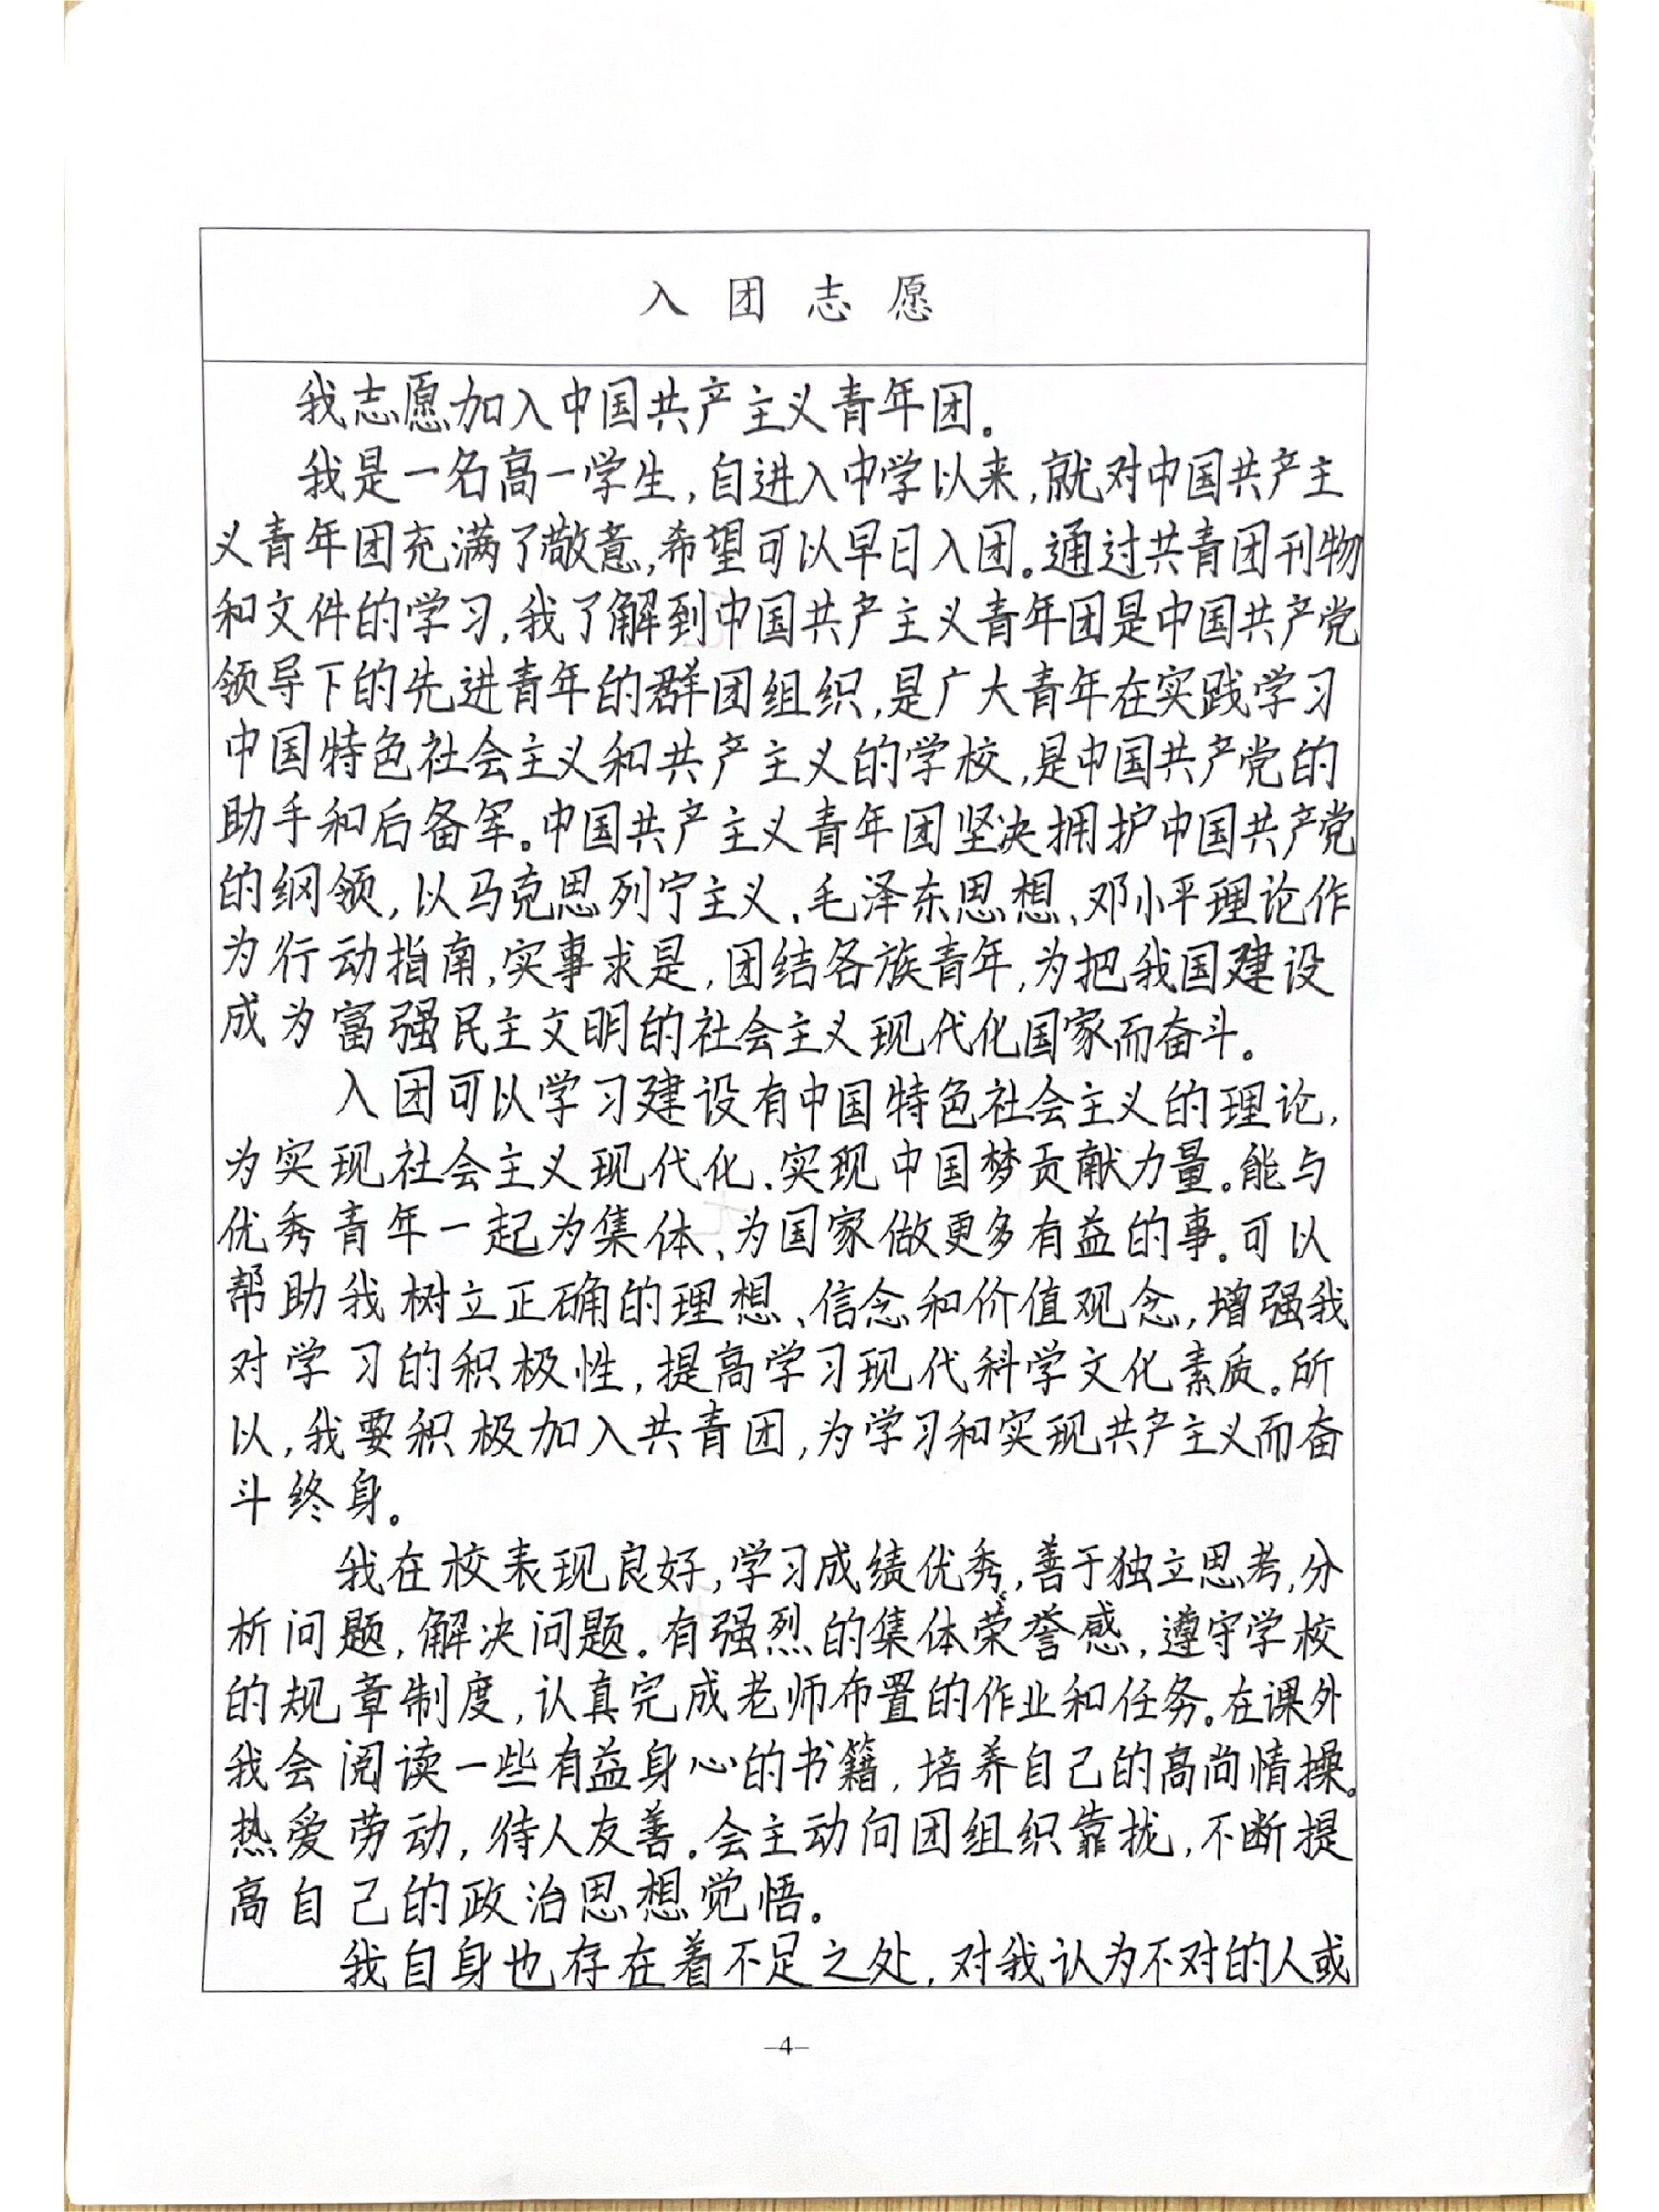 入团志愿
我志愿加入中国共产主义青年团。
我是一名高一学生,自进入中学以来,就对中国共产主
义青年团充满了敬意,希望可以早日入团。通过共青团刊物
和文件的学习,我了解到中国共产主义青年团是中国共产党
领导下的先进青年的群团组织,是广大青年在实践学习
中国特色社会主义和共产主义的学校,是中国共产党的
助手和后备军。中国共产主义青年团坚决拥护中国共产党
的纲领,以马克思列宁主义、毛泽东思想、邓小平理论作
为行动指南,实事求是,团结各族青年,为把我国建设
成为富强民主文明的社会主义现代化国家而奋斗。
入团可以学习建设有中国特色社会主义的理论,
为实现社会主义现代化、实现中国梦贡献力量。能与
优秀青年一起为集体、为国家做更多有益的事。可以
帮助我树立正确的理想、信念和价值观念,增强我
对学习的积极性,提高学习现代科学文化素质。所
以,我要积极加入共青团,为学习和实现共产主义而奋
斗终身。
我在校表现良好,学习成绩优秀,善于独立思考,分
析问题,解决问题。有强烈的集体荣誉感,遵守学校
的规章制度,认真完成老师布置的作业和任务。在课外
我会阅读一些有益身心的书籍,培养自己的高尚情操。
热爱劳动,待人友善。会主动向团组织靠拢,不断提
高自己的政治思想觉悟。
我自身也存在着不足之处,对我认为不对的人或
–4–